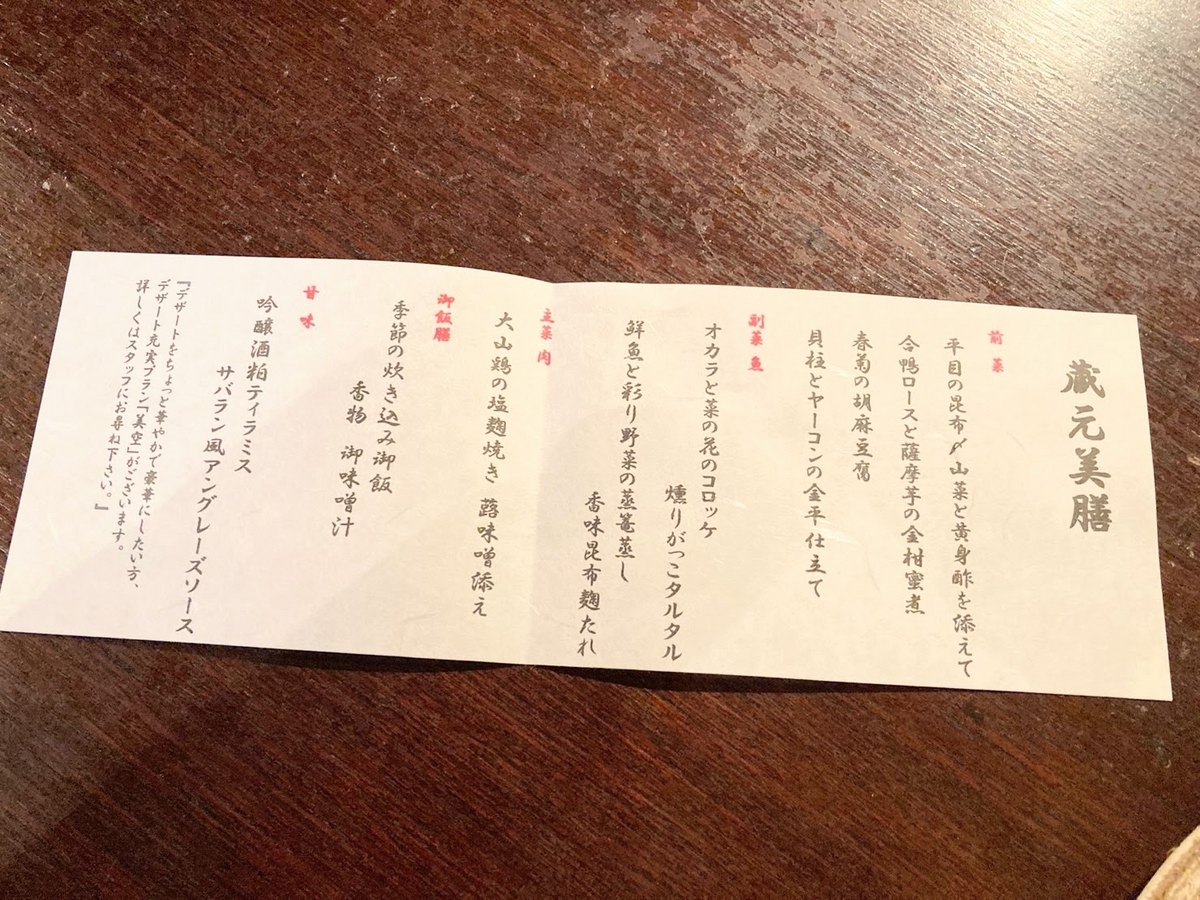 蔵元美膳
前菜
平目の昆布〆山菜と黄身酢を添えて
合鴨ロースと薩摩芋の金柑蜜煮
春菊の胡麻豆腐
貝柱とヤーコンの金平仕立て
副菜 魚
オカラと菜の花のコロッケ
燻りがっこタルタル
鮮魚と彩り野菜の蒸篭蒸し
香味昆布麹たれ
主菜 肉
大山鶏の塩麹焼き 蕗味噌添え
御飯膳
季節の炊き込み御飯
香物 御味噌汁
甘味
吟醸酒粕ティラミス
サバラン風アングレーズソース
『デザートをちょっと華やかで豪華にしたい方、
デザート充実プラン「美空」がございます。
詳しくはスタッフにお尋ね下さい。』